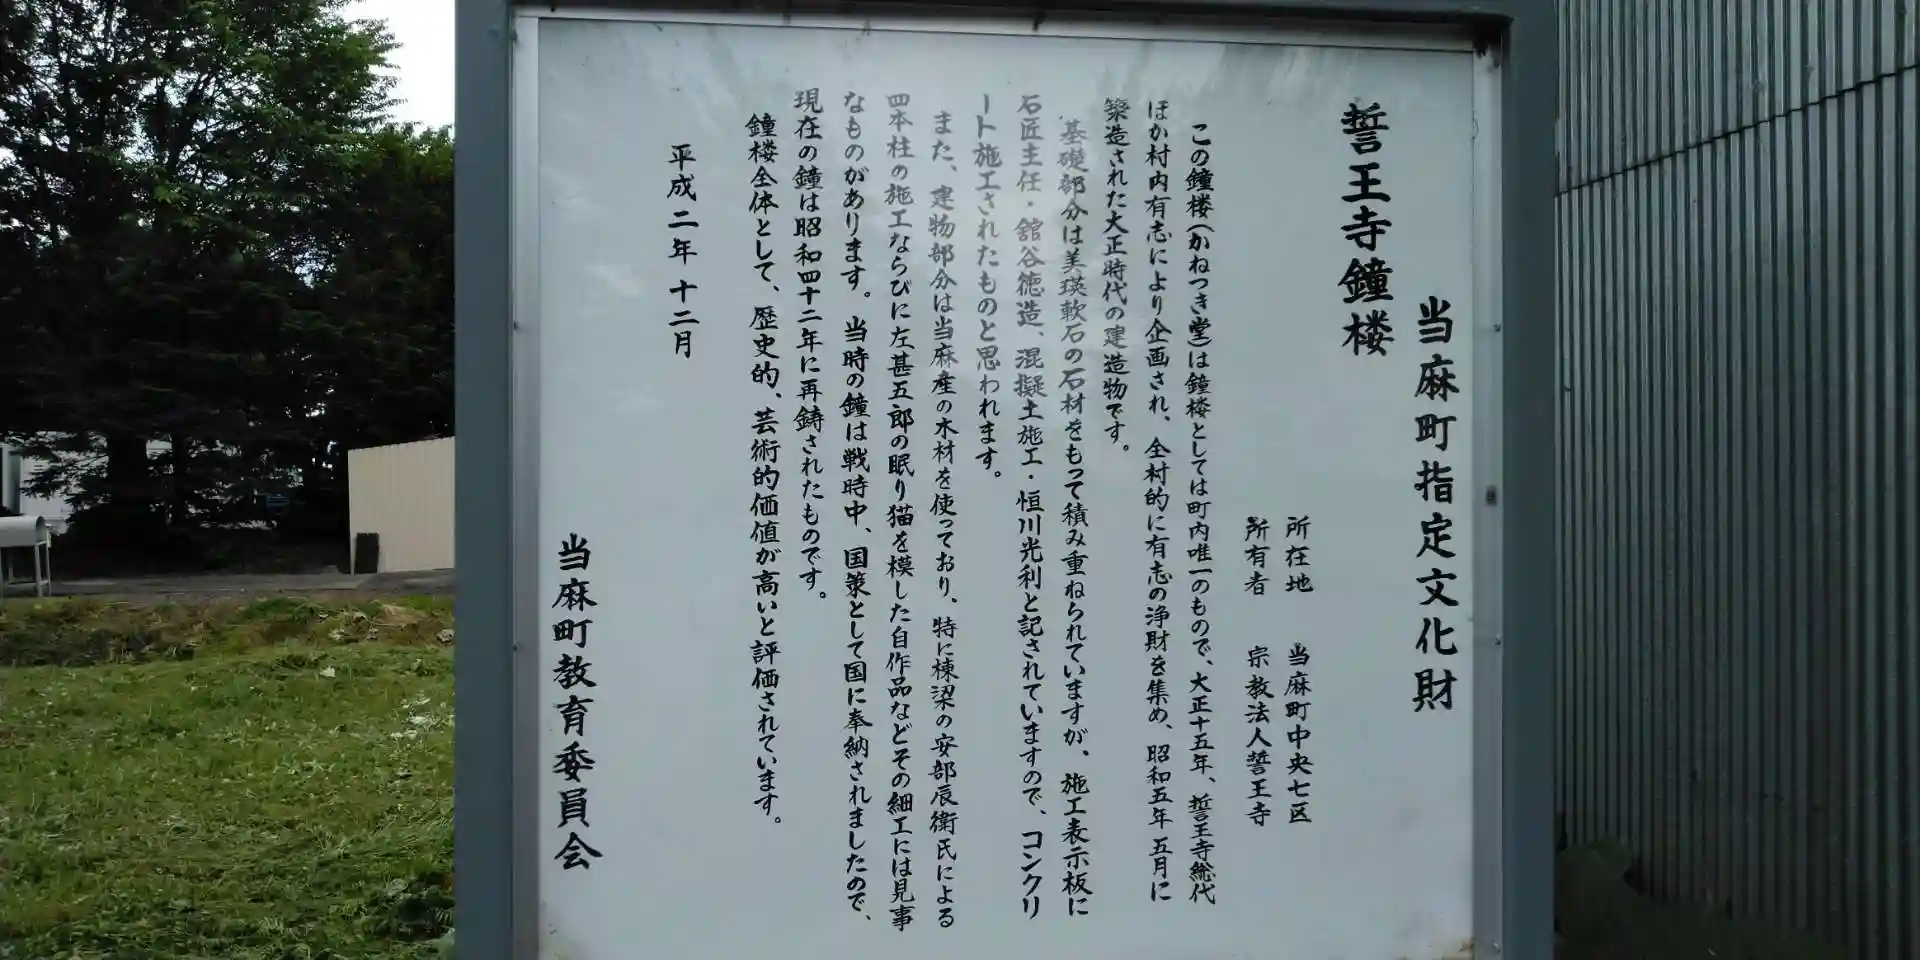 当麻町指定文化財
誓王寺鐘楼
所在地　当麻町中央七区
所有者　宗教法人誓王寺
この鐘楼(かねつき堂)は鐘楼としては町内唯一のもので、大正十五年、誓王寺総代
ほか村内有志により企画され、全村的に有志の浄財を集め、昭和五年五月に
築造された大正時代の建造物です。
基礎部分は美瑛軟石の石材をもって積み重ねられていますが、施工表示板に
石匠主任・舘谷徳造、混擬土施工・恒川光利と記されていますので、コンクリ
ート施工されたものと思われます。
また、建物部分は当麻産の木材を使っており、特に棟梁の安部辰衛氏による
四本柱の施工ならびに左甚五郎の眠り猫を模した自作品などその細工には見事
なものがあります。当時の鐘は戦時中、国策として国に奉納されましたので、
現在の鐘は昭和四十二年に再鋳されたものです。
鐘楼全体として、歴史的、芸術的価値が高いと評価されています。
平成二年十二月
当麻町教育委員会